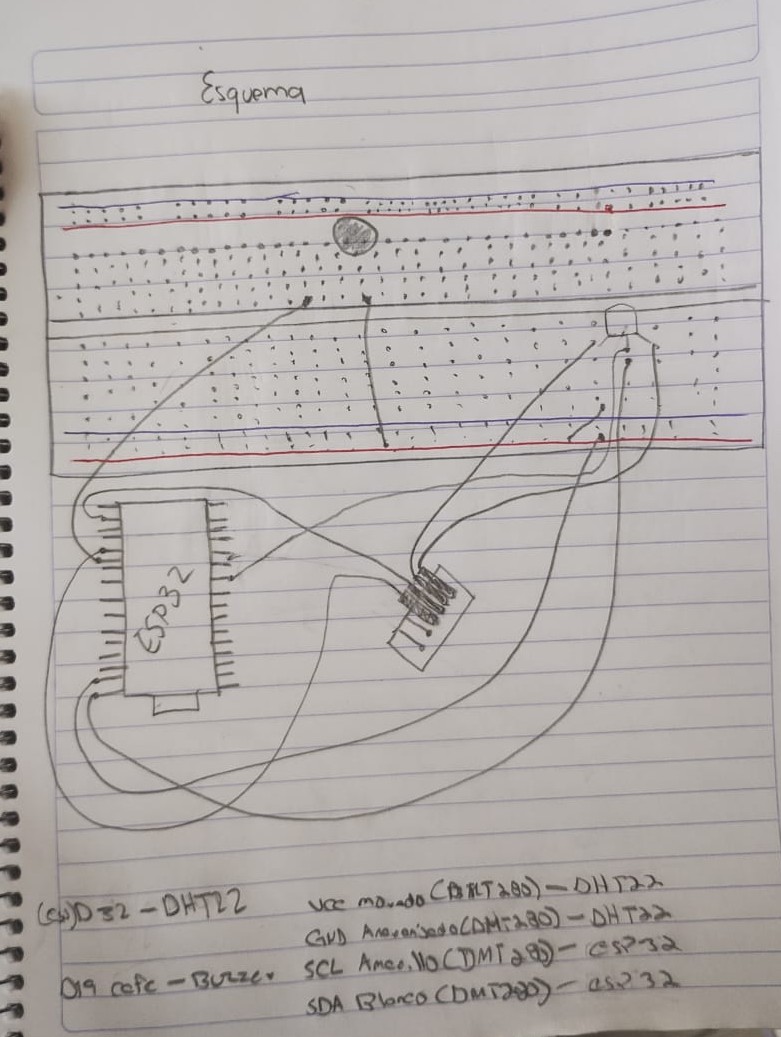 Esquema
ESP32
D32 - DHT22
D19 cafe - Buzzer
VCC morado (BMT280) - DHT22
GND Anaranjado (DMT280) - DHT22
SCL Amarillo (DMT280) - esp32
SDA Blanco (DMT280) - esp32